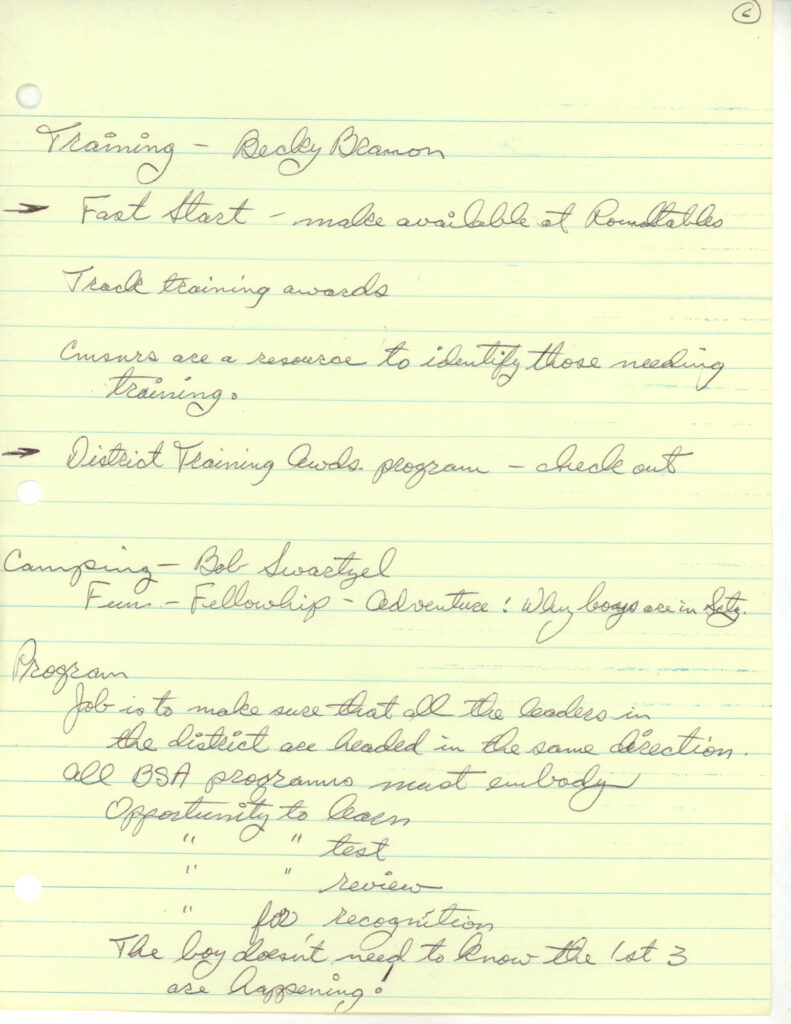 6
Training - Becky Beamon
→ Fast Start - make available at Roundtables
Track training awards
Cmsnrs are a resource to identify those needing
training.
→ District Training Awds. program - check out
Camping - Bob Swartzel
Fun - Fellowhip - Adventure! Why boys are in
Program
Job is to make sure that all the leaders in
the district are headed in the same direction.
All BSA programs must embody
Opportunity to learn
" " test
" " review
" for recognition
The boy doesn't need to know the 1st 3
are happening!